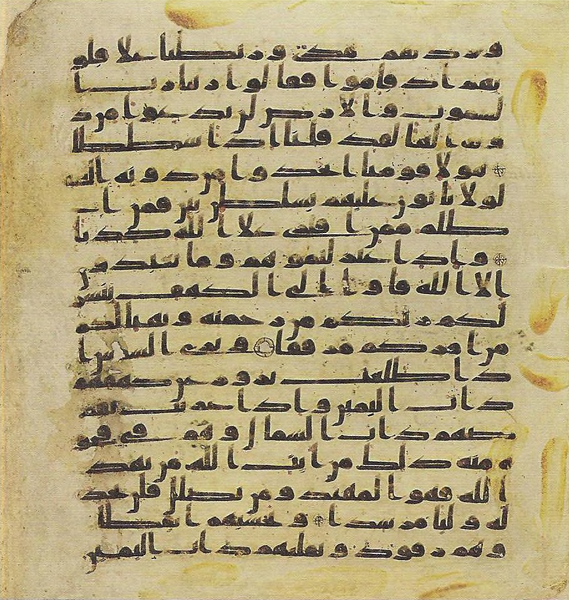 وزدنهم هدى وربطنا علا قلو
بهم اذ قاموا فقالوا ربنا رب ا
لسموت والارض لن ندعوا من د
ونه الها لقد قلنا اذا شططا
هولا قومنا اتخذوا من دونه الهة
لولا ياتون عليهم بسلطن بين فمن ا
ظلم ممن افترى علا الله كذبا
واذ اعتزلتموهم وما يعبدون
الا الله فاوا الى الكهف ينشر
لكم ربكم من رحمته ويهيا لكم
من امركم مرفقا وترى الشمس ا
ذا طلعت تزور عن كهفهم
ذات اليمين واذا غربت تقر
ضهم ذات الشمال وهم في فجو
ة منه ذلك من ايت الله من يهد
الله فهو المهتد ومن يضلل فلن تجد
له وليا مرشدا وتحسبهم ايقظا
وهم رقود ونقلبهم ذات اليمين